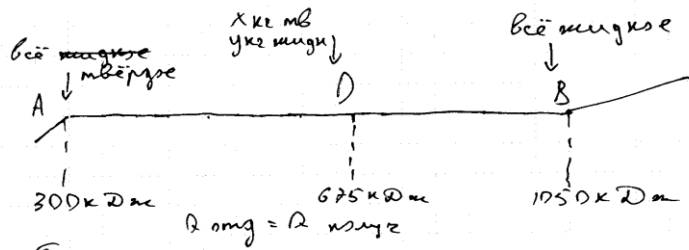 х кг тв
всё жидкое
твёрдое
у кг жидк
всё жидкое
A D B
300 кДж 675 кДж 1050 кДж
Q отд = Q получ